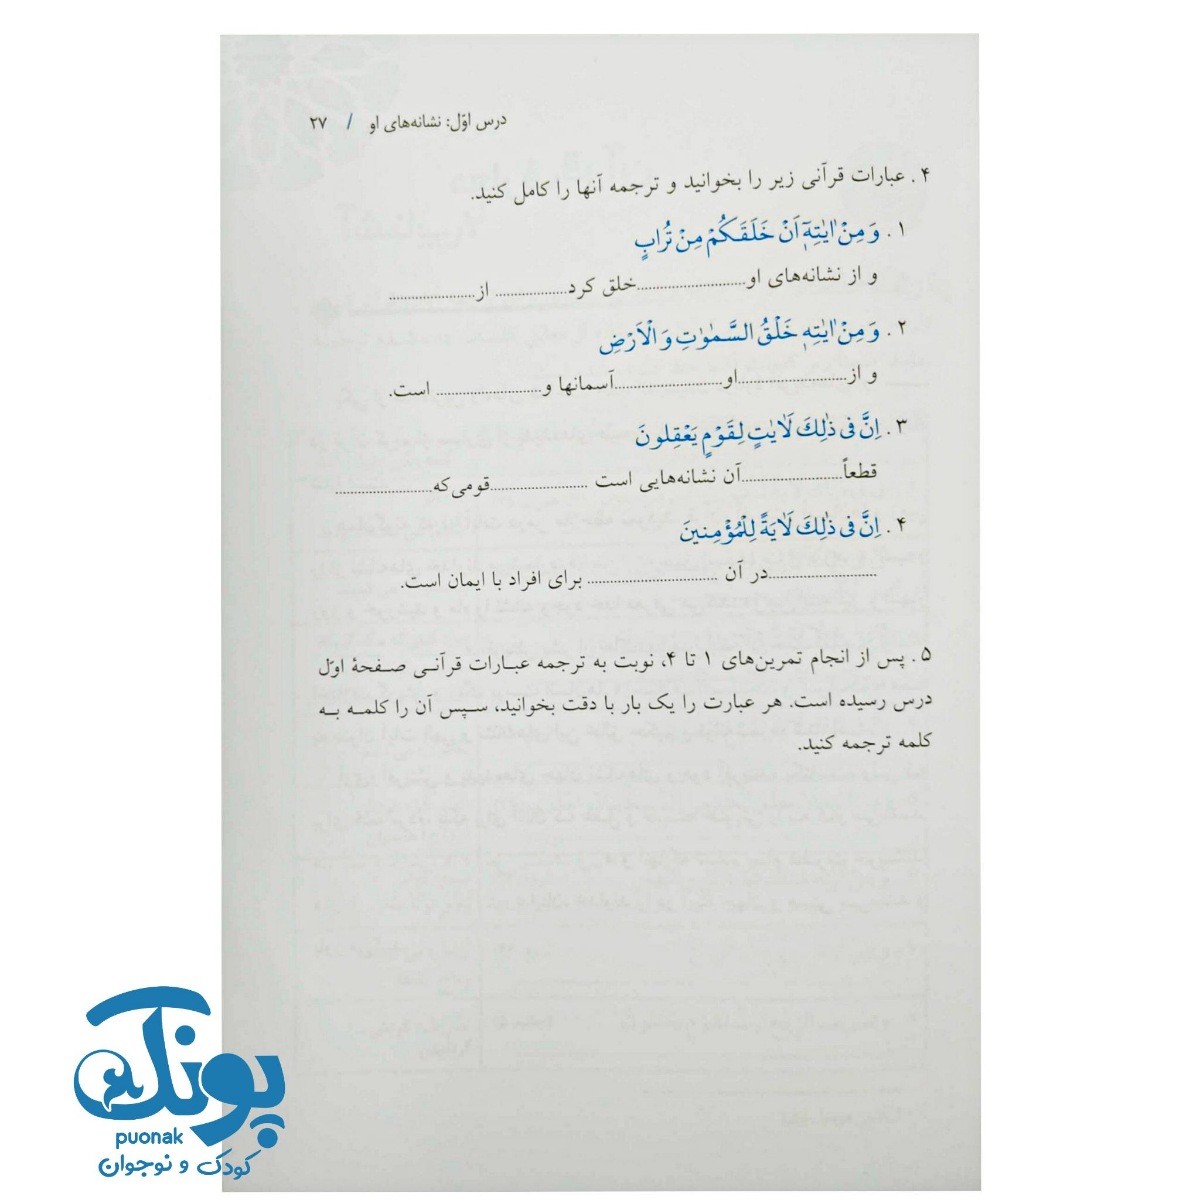 درس اوّل: نشانه‌های او / ۲۷
۴. عبارات قرآنی زیر را بخوانید و ترجمه آنها را کامل کنید.
۱. وَ مِنْ ءایٰتِهٖٓ اَنْ خَلَقَکُمْ مِنْ تُرابٍ
و از نشانه‌های او........................خلق کرد................ از....................
۲. وَ مِنْ ءایٰتِهٖ خَلْقُ السَّمٰوٰتِ وَ الْاَرْضِ
و از........................او........................آسمانها و........................ است.
۳. اِنَّ فی ذٰلِکَ لَاٰیٰتٍ لِقَوْمٍ یَعْقِلونَ
قطعاً........................آن نشانه‌هایی است ........................قومی‌که........................
۴. اِنَّ فی ذٰلِکَ لَاٰیَةً لِلْمُؤْمِنینَ
........................در آن ........................ برای افراد با ایمان است.
۵. پس از انجام تمرین‌های ۱ تا ۴، نوبت به ترجمه عبارات قرآنی صفحهٔ اوّل
درس رسیده است. هر عبارت را یک بار با دقت بخوانید، سپس آن را کلمه به
کلمه ترجمه کنید.
پونک
puonak
کودک و نوجوان